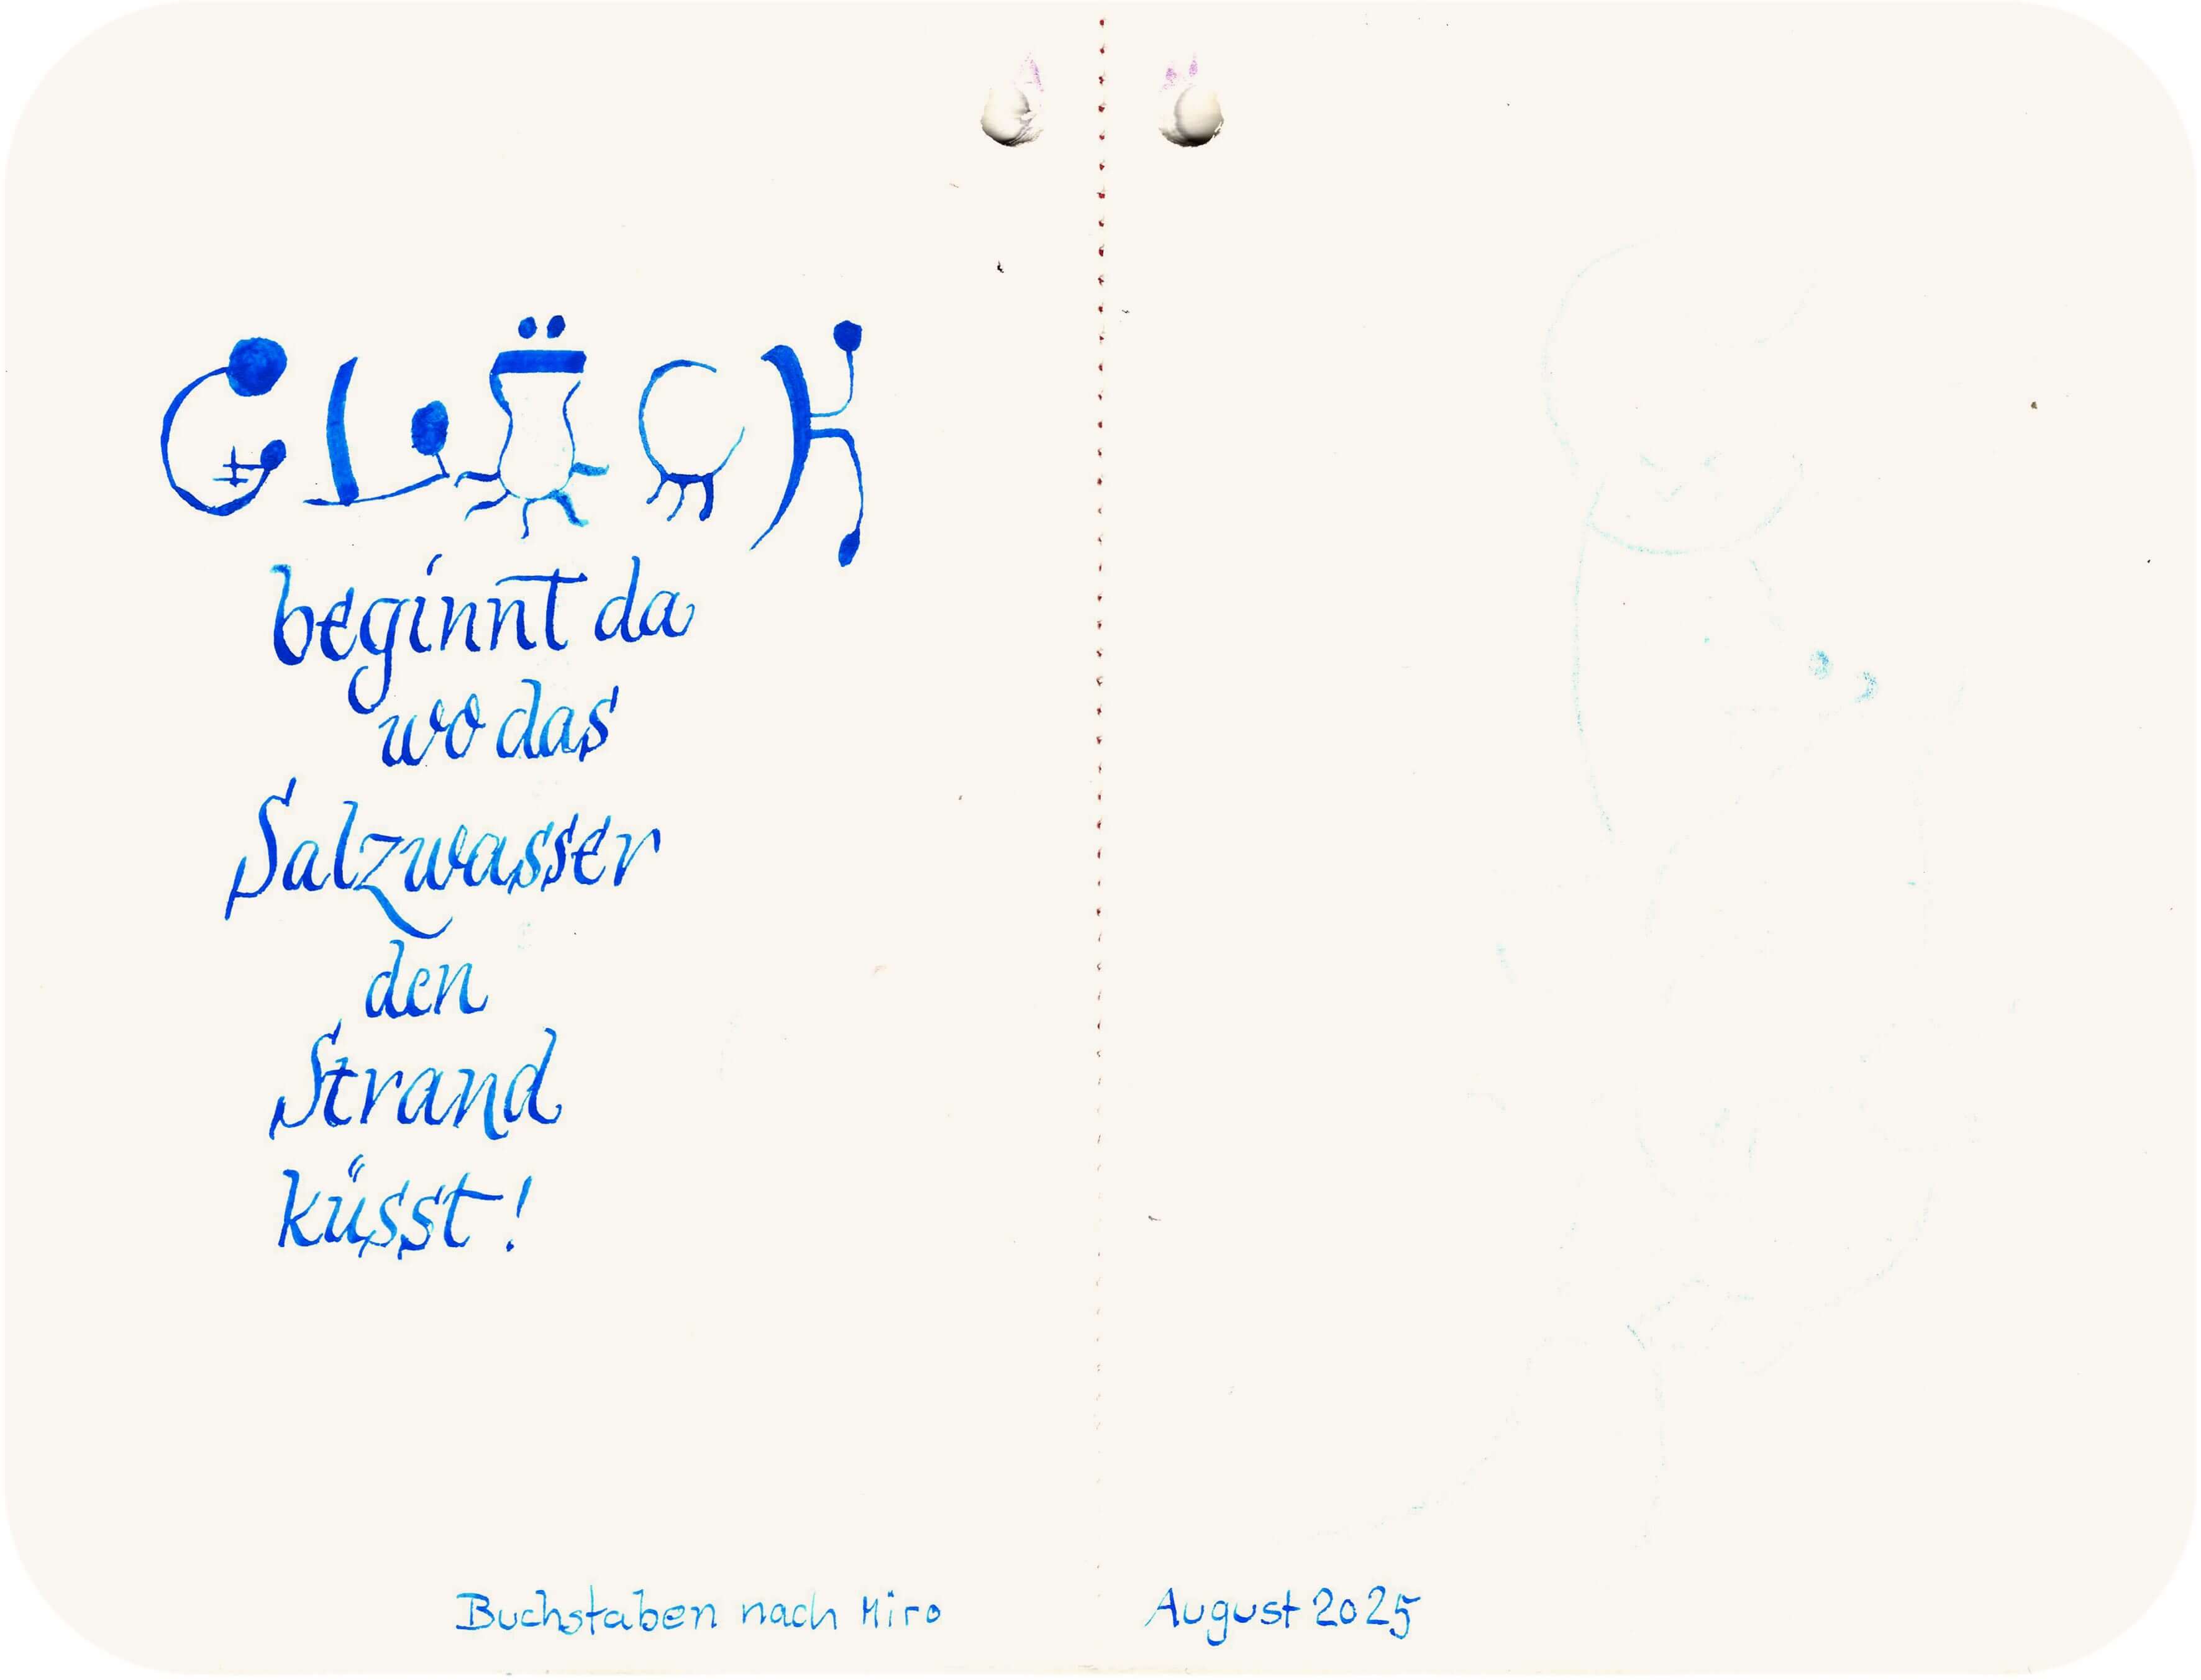 GLÜCK
beginnt da
wo das
Salzwasser
den
Strand
küsst!
Buchstaben nach Miro
August 2025